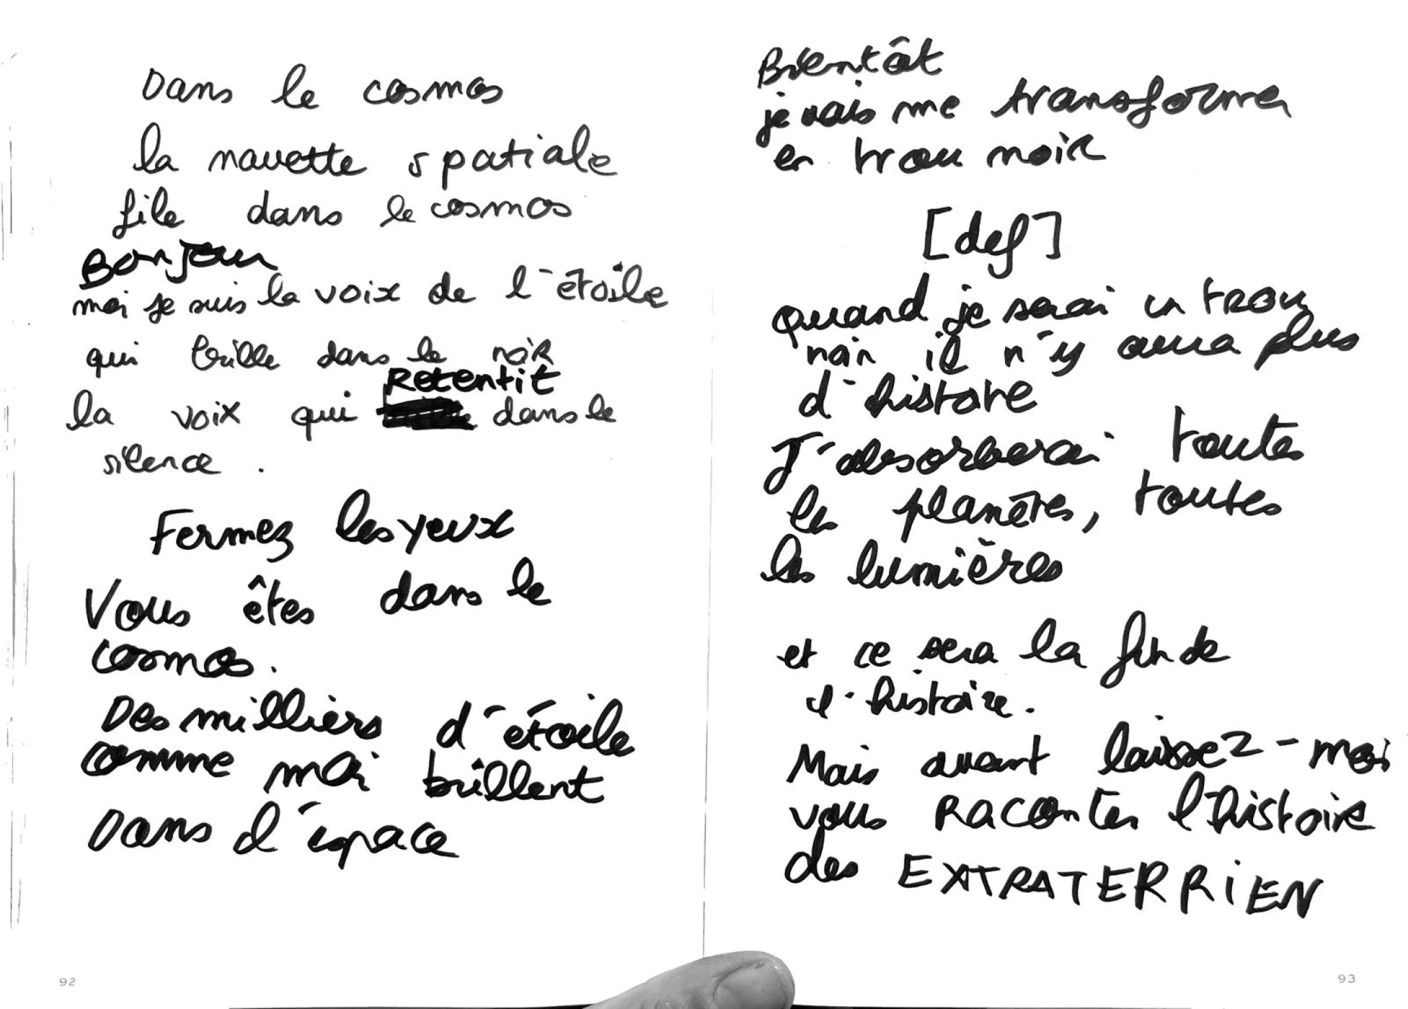 Dans le cosmos
la navette spatiale
file dans le cosmos
Bonjour
moi je suis la voix de l'étoile
qui brille dans le noir
Retentit
la voix qui dans le
silence.
Fermez les yeux
Vous êtes dans le
cosmos.
Des milliers d'étoile
comme moi brillent
Dans l'espace
92
Bientôt
je vais me transformer
en trou noir
[def]
quand je serai un trou
noir il n'y aura plus
d'histoire
J'absorberai toutes
les planètes, toutes
les lumières
et ce sera la fin de
l'histoire.
Mais avant laissez-moi
vous Raconter l'histoire
des EXTRATERRiEN
93